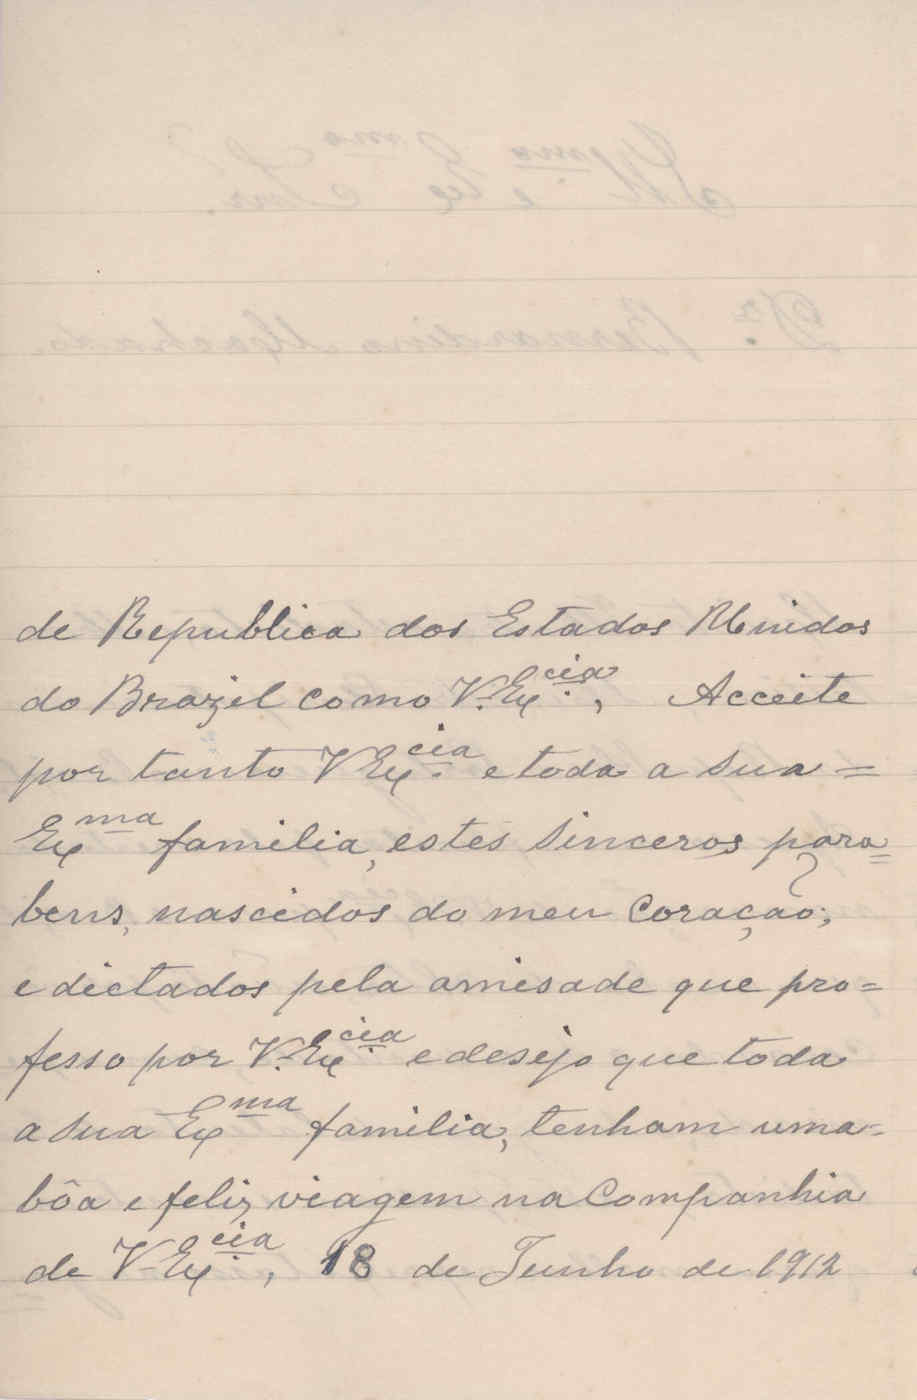 de Republica dos Estados Unidos
do Brazil como V. Ex.cia, Acceite
por tanto V Ex.cia e toda a sua=
Exma familia, estes sinceros para=
bens, nascidos do meu coração;
e dictados pela amisade que pro=
fesso por V. Ex.cia e desejo que toda
a sua Exma familia, tenham uma=
bôa e feliz viagem na Companhia
de V Ex.cia, 18 de Junho de 1912